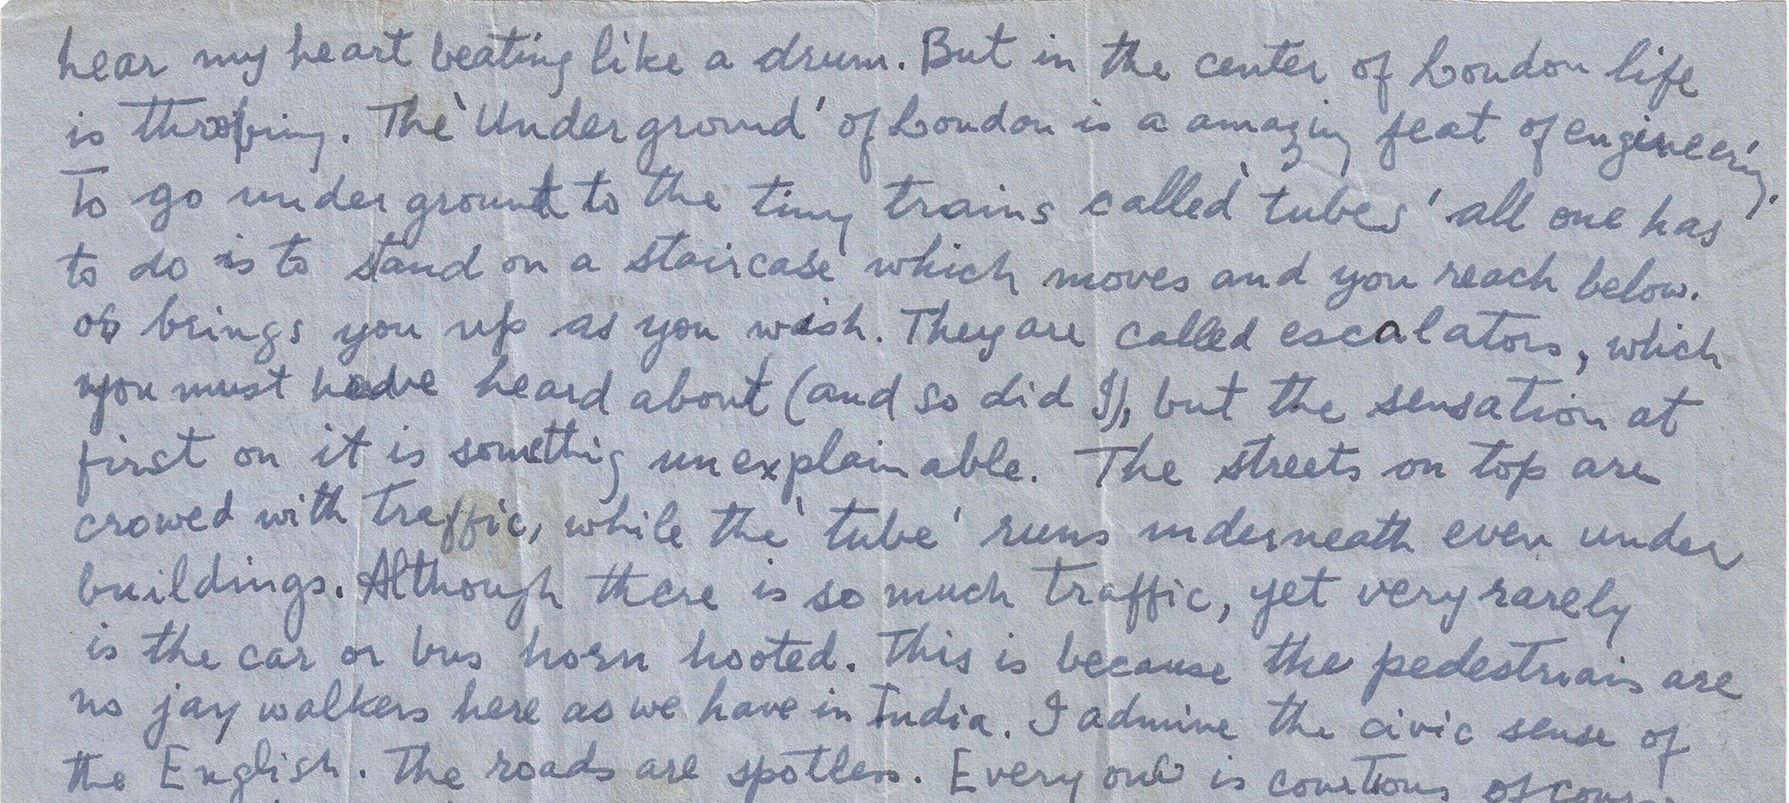 hear my heart beating like a drum. But in the center of London life
is throbing. The 'Underground' of London is a amazing feat of engineering.
To go underground to the tiny trains called 'tubes' all one has
to do is to stand on a staircase which moves and you reach below.
or brings you up as you wish. They are called escalators, which
you must have heard about (and so did I), but the sensation at
first on it is something unexplainable. The streets on top are
crowed with traffic, while the 'tube' runs underneath even under
buildings. Although there is so much traffic, yet very rarely
is the car or bus horn hooted. This is because the pedestriais are
no jay walkers here as we have in India. I admire the civic sense of
the English. The roads are spotless. Every one is courtious of